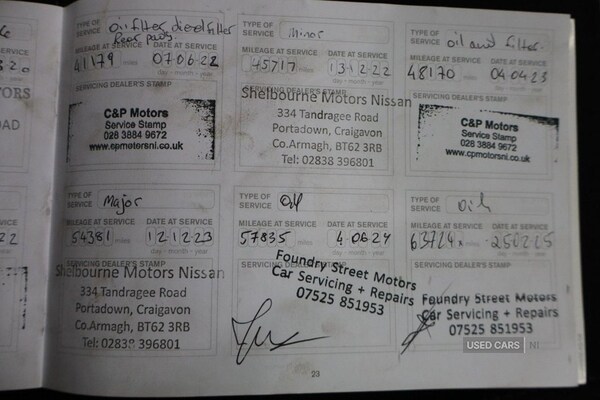 TYPE OF SERVICE oil filter diesel filter
Rear pads.
MILEAGE AT SERVICE DATE AT SERVICE
41179 miles 07.06.22
day - month - year
SERVICING DEALER'S STAMP
C&P Motors
Service Stamp
028 3884 9672
www.cpmotorsni.co.uk
TYPE OF SERVICE Minor
MILEAGE AT SERVICE DATE AT SERVICE
45717 miles 13.12.22
day - month - year
SERVICING DEALER'S STAMP
Shelbourne Motors Nissan
334 Tandragee Road
Portadown, Craigavon
Co.Armagh, BT62 3RB
Tel: 02838 396801
TYPE OF SERVICE oil and filter.
MILEAGE AT SERVICE DATE AT SERVICE
48170 miles 04.04.23
day - month - year
SERVICING DEALER'S STAMP
C&P Motors
Service Stamp
028 3884 9672
www.cpmotorsni.co.uk
TYPE OF SERVICE Major
MILEAGE AT SERVICE DATE AT SERVICE
54381 miles 12.12.23
day - month - year
SERVICING DEALER'S STAMP
Shelbourne Motors Nissan
334 Tandragee Road
Portadown, Craigavon
Co.Armagh, BT62 3RB
Tel: 02838 396801
TYPE OF SERVICE Oil
MILEAGE AT SERVICE DATE AT SERVICE
57835 miles 4.06.24
day - month - year
SERVICING DEALER'S STAMP
Foundry Street Motors
Car Servicing + Repairs
07525 851953
TYPE OF SERVICE Oil
MILEAGE AT SERVICE DATE AT SERVICE
63724 miles 25.02.25
day - month - year
SERVICING DEALER'S STAMP
Foundry Street Motors
Car Servicing + Repairs
07525 851953
USED CARS NI
23